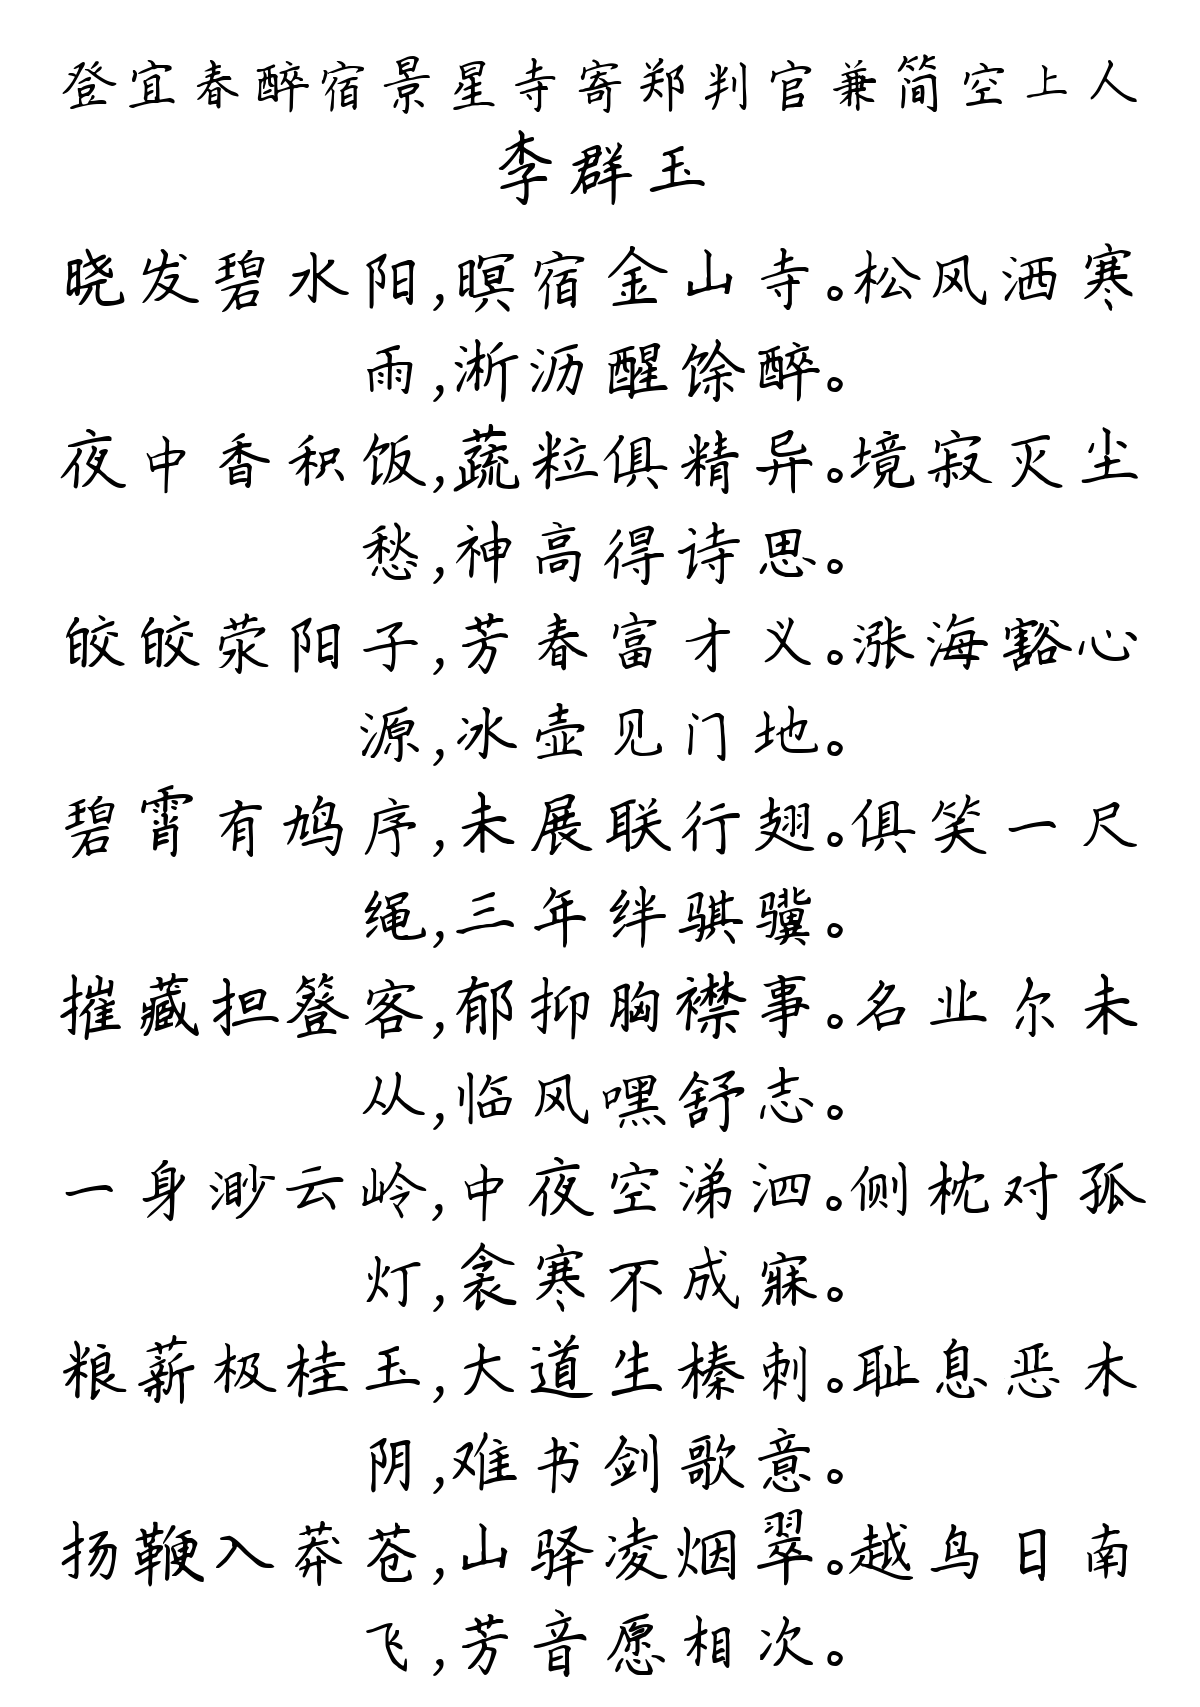 登宜春醉宿景星寺寄郑判官兼简空上人
李群玉
晓发碧水阳,暝宿金山寺。松风洒寒
雨,淅沥醒馀醉。
夜中香积饭,蔬粒俱精异。境寂灭尘
愁,神高得诗思。
皎皎荥阳子,芳春富才义。涨海豁心
源,冰壶见门地。
碧霄有鸠序,未展联行翅。俱笑一尺
绳,三年绊骐骥。
摧藏担簦客,郁抑胸襟事。名业尔未
从,临风嘿舒志。
一身渺云岭,中夜空涕泗。侧枕对孤
灯,衾寒不成寐。
粮薪极桂玉,大道生榛刺。耻息恶木
阴,难书剑歌意。
扬鞭入莽苍,山驿凌烟翠。越鸟日南
飞,芳音愿相次。